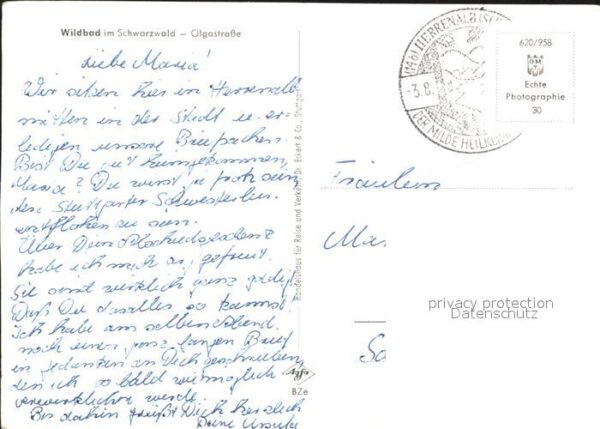 Wildbad im Schwarzwald — Olgastraße
Liebe Maria!
Wir sitzen hier in Herrenalb
mitten in der Stadt u. er-
ledigen unsere
Bist Du gut heimgekommen,
Maria? Du wirst ja froh sein
den Stuttgarter Schwestern
zu sein.
Über Dein
habe ich mich so gefreut.
Sie sind wirklich ganz goldig!
Daß Du das alles so kannst!
Ich habe am selben Abend
noch einen ganz langen Brief
in Gedanken an Dich geschrieben,
den ich so bald wie möglich
verwirklichen werde.
Bis dahin grüßt Dich herzlich
Deine Ursula
Agfa
BZe
HERRENALB
-3.8.
DER MILDE
620/958
Echte
Photographie
30
Fräulein
Ma
privacy protection
Datenschutz